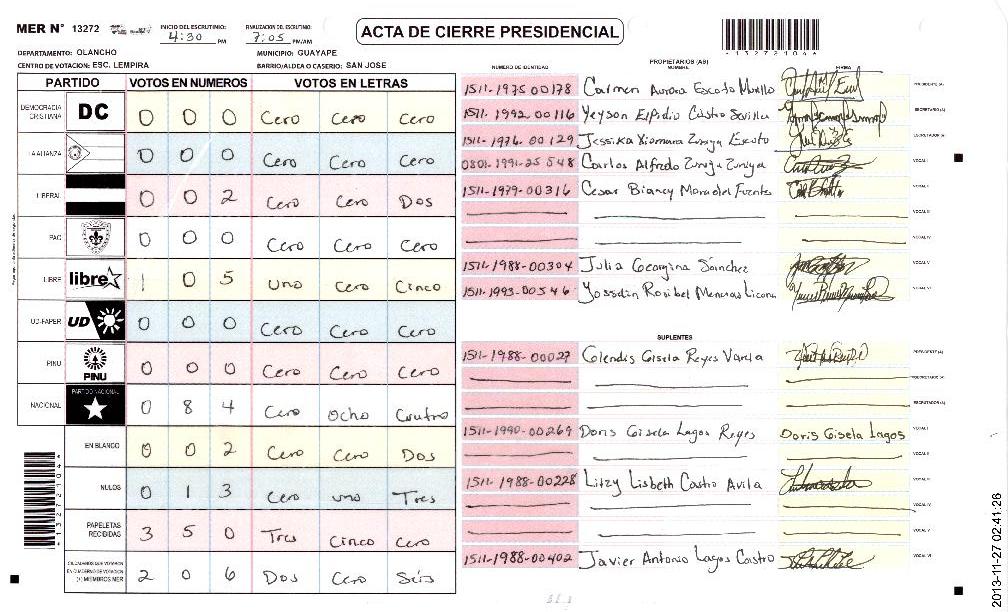 MER N° 13272 INICIO DEL ESCRUTINIO: 4:30 PM FINALIZACION DEL ESCRUTINIO: 7:05 PM/AM
ACTA DE CIERRE PRESIDENCIAL
DEPARTAMENTO: OLANCHO MUNICIPIO: GUAYAPE
CENTRO DE VOTACION: ESC. LEMPIRA BARRIO/ALDEA O CASERIO: SAN JOSE
PARTIDO VOTOS EN NUMEROS VOTOS EN LETRAS
DEMOCRACIA CRISTIANA DC 0 0 0 Cero Cero Cero
LA ALIANZA 0 0 0 Cero Cero Cero
LIBERAL 0 0 2 Cero Cero Dos
PAC 0 0 0 Cero Cero Cero
LIBRE libre 1 0 5 Uno Cero Cinco
UD-FAPER UD 0 0 0 Cero Cero Cero
PINU PINU 0 0 0 Cero Cero Cero
NACIONAL PARTIDO NACIONAL 0 8 4 Cero Ocho Cuatro
EN BLANCO 0 0 2 Cero Cero Dos
NULOS 0 1 3 Cero uno Tres
PAPELETAS RECIBIDAS 3 5 0 Tres Cinco Cero
CIUDADANOS QUE VOTARON EN CUADERNO DE VOTACION (+) MIEMBROS MER 2 0 6 Dos Cero Seis
PROPIETARIOS (AS)
NUMERO DE IDENTIDAD NOMBRE FIRMA
1511-1975 00178 Carmen Aurora Escoto Murillo PRESIDENTE (A)
1511-1992 00116 Yeyson Elpidio Castro Sevilla SECRETARIO (A)
1511-1976-00129 Jessika Xiomara Zuniga Escoto ESCRUTADOR (A)
0801-1991-25548 Carlos Alfredo Zuniga Zuniga VOCAL I
1511-1979-00316 Cesar VOCAL II
VOCAL III
VOCAL IV
1511-1988-00304 Julia Georgina Sánchez VOCAL V
1511-1993-00546 Yosselin Rosibel Licona VOCAL VI
SUPLENTES
1511-1988-00027 Glendis Gisela Reyes Varela PRESIDENTE (A)
SECRETARIO (A)
ESCRUTADOR (A)
1511-1990-00269 Doris Gisela Lagos Reyes Doris Gisela Lagos VOCAL I
VOCAL II
1511-1988-00228 Litzy Lisbeth Castro Avila VOCAL III
VOCAL IV
VOCAL V
1511-1988-00402 Javier Antonio Lagos Castro VOCAL VI
2013-11-27 02:41:26